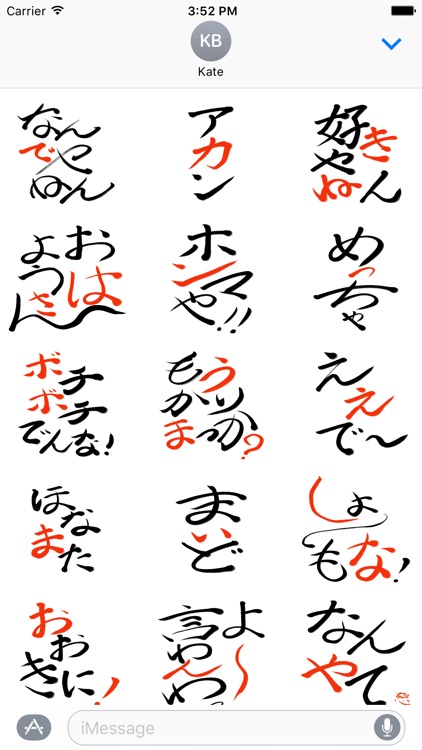 Carrier 3:52 PM
KB
Kate
なんでやねん
アカン
好きやねん
おはようさん〜
ホンマや!!
めっちゃ
ボチボチでんな!
もうかりまっか?
ええで〜
ほなまた
まいど
しょーもな!
おおきに!
よ〜言わんわ
なんやて
iMessage